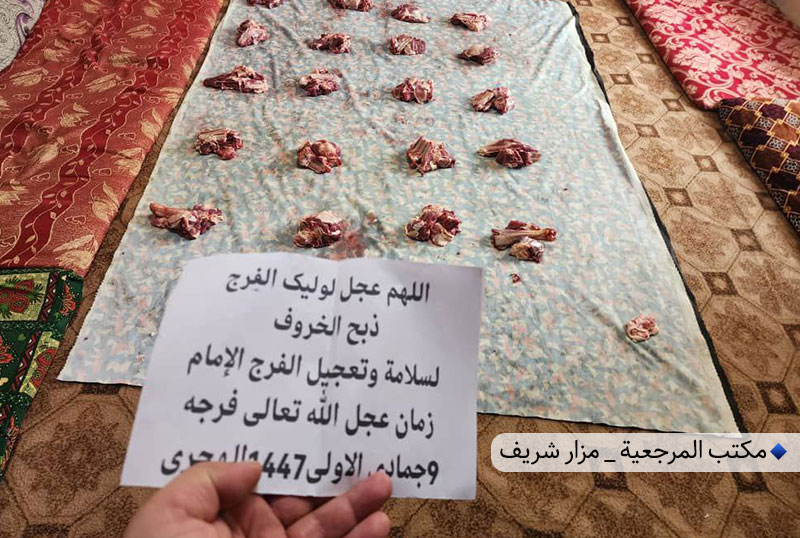 اللهم عجل لوليک الفرج
ذبح الخروف
لسلامة وتعجيل الفرج الإمام
زمان عجل الله تعالى فرجه
9جمادی الاولی1447الهجری
مكتب المرجعية _ مزار شريف